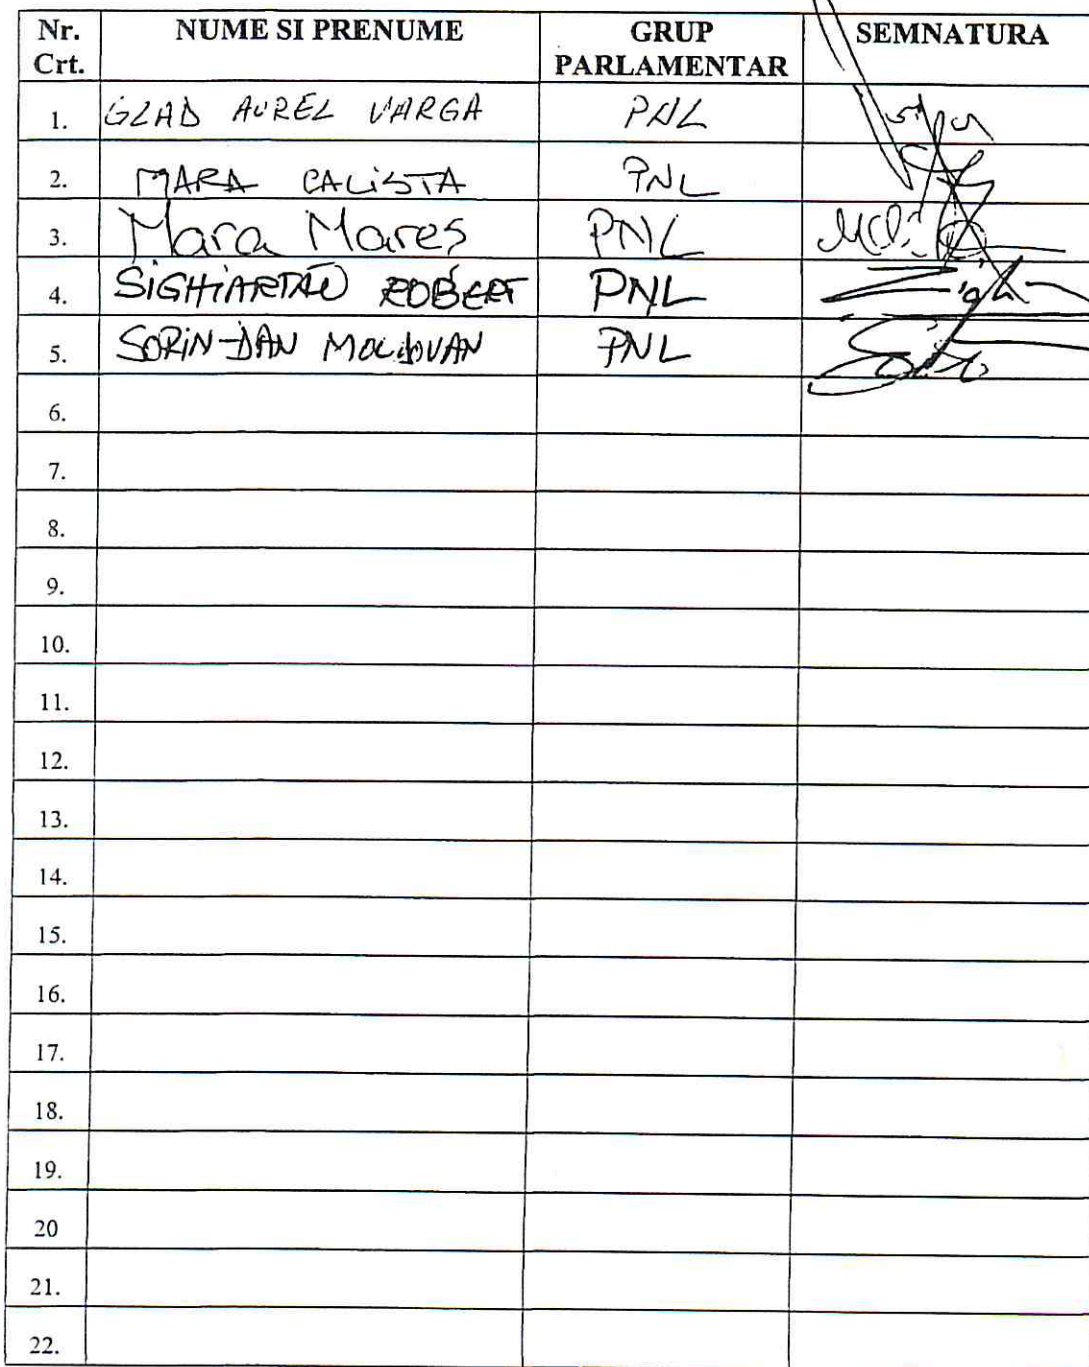 Nr. Crt. NUME SI PRENUME GRUP PARLAMENTAR SEMNATURA
1. GLAD AUREL VARGA PNL
2. MARA CALISTA PNL
3. Mara Mares PNL
4. SIGHIARTĂU ROBERT PNL
5. SORIN-DAN MOLDOVAN PNL
6.
7.
8.
9.
10.
11.
12.
13.
14.
15.
16.
17.
18.
19.
20
21.
22.